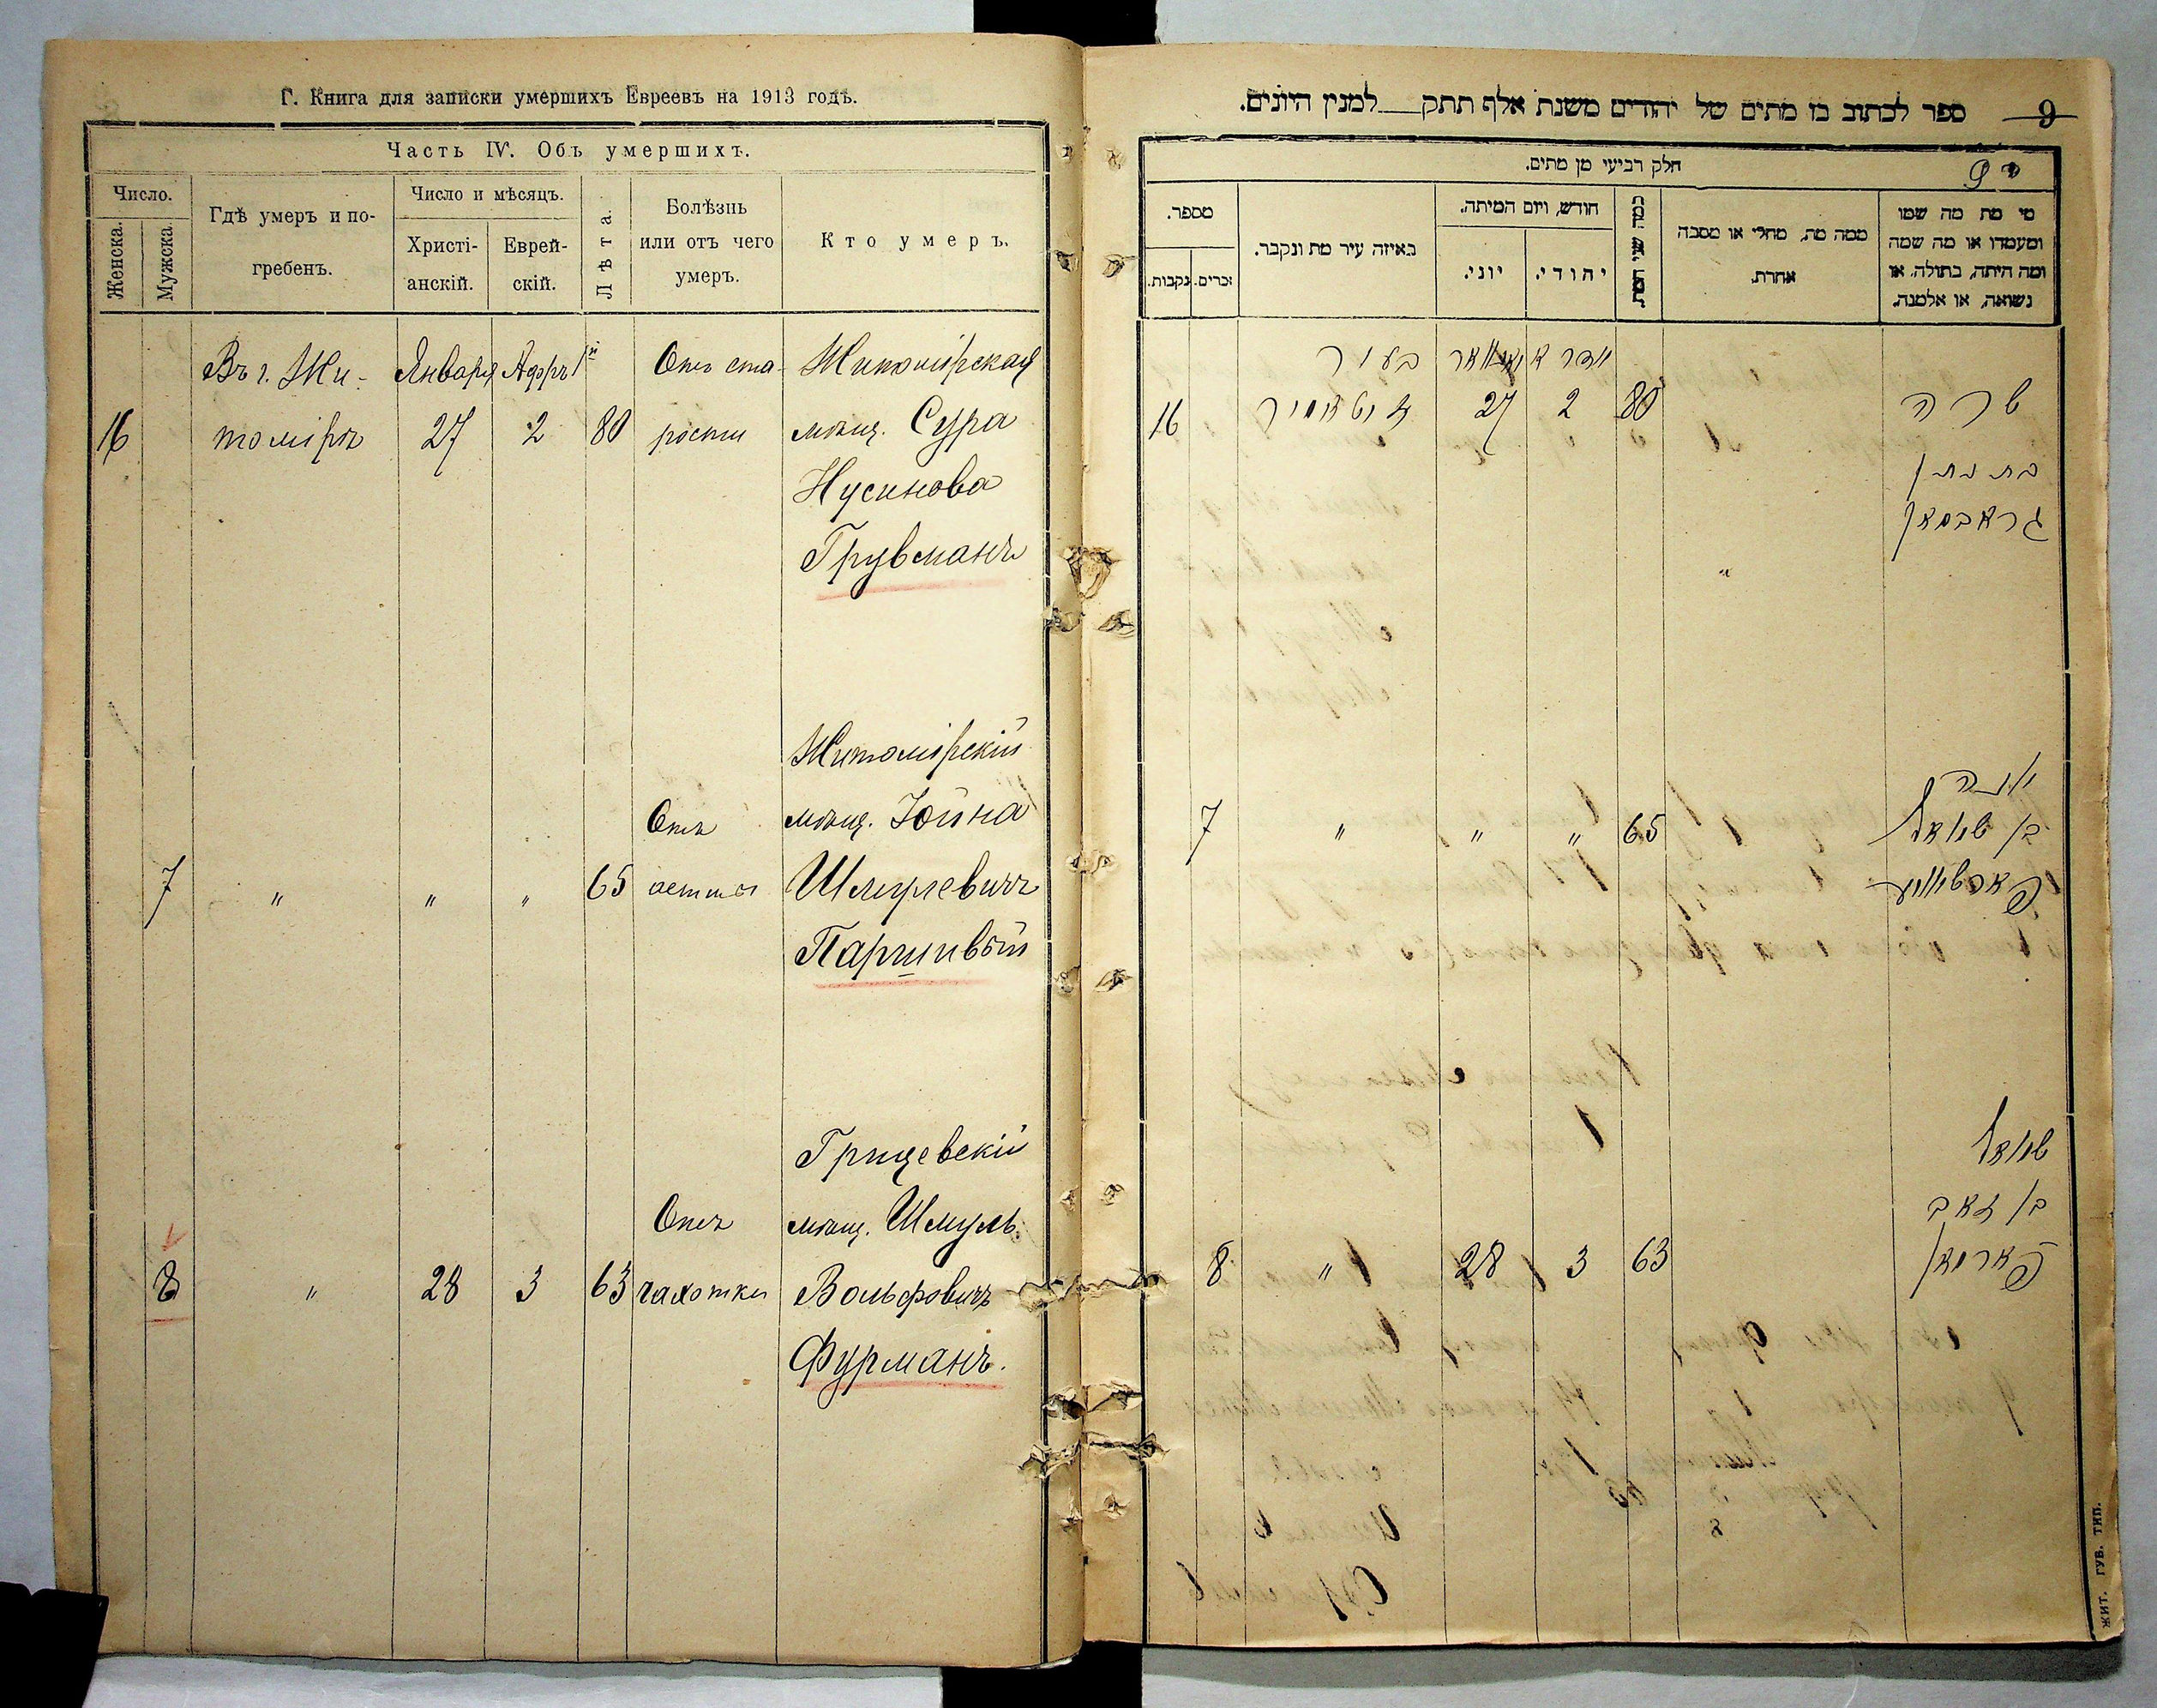 Г. Книга для записки умершихъ Евреевъ на 1913 годъ.
Часть IV. Объ умершихъ.
Число.
Женска.
Мужска.
Гдѣ умеръ и по-
гребенъ.
Число и мѣсяцъ.
Христі-
анскій.
Еврей-
скій.
Лѣта.
Болѣзнь
или отъ чего
умеръ.
Кто умеръ.
Въ г. Жи- Января Адръ 1й Отъ ста- Житомірская
16 томірѣ 27 2 80 рости мѣщ. Сура
Нусинова
Грувманъ
Житомірскій
Отъ мѣщ. Іойна
7 " " " 65 астмы Шмулевичъ
Паршивый
Грицевскій
Отъ мѣщ. Шмуль
8 " 28 3 63 чахотки Вольфовичъ
Фурманъ.
ספר לכתוב בו מתים של יהודים משנת אלף תתק למנין היונים.
9
חלק רביעי מן מתים.
מספר.
זכרים.
נקבות.
באיזה עיר מת ונקבר.
חודש, ויום המיתה.
יוני.
יהודי.
כמה שני חייו.
ממה מת, מחלי או מסבה
אחרת.
מי מת מה שמו
ומעמדו או מה שמה
ומה היתה, בתולה, או
נשואה, או אלמנה.
בעיר יאנואר אדר א
16 זיטאמיר 27 2 80 שרה
בת נתן
גראבמאן
"
יונה
7 " " " 65 בן שמואל
פארשיווע
שמואל
בן זאב
8 " 28 3 63 פארמאן
ЖИТ. ГУБ. ТИП.